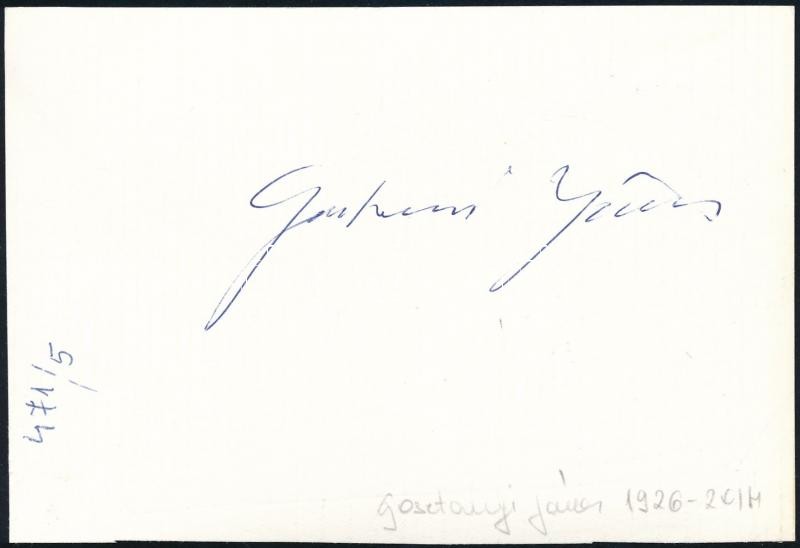 Gosztonyi János
471/5
Gosztonyi János 1926-2014